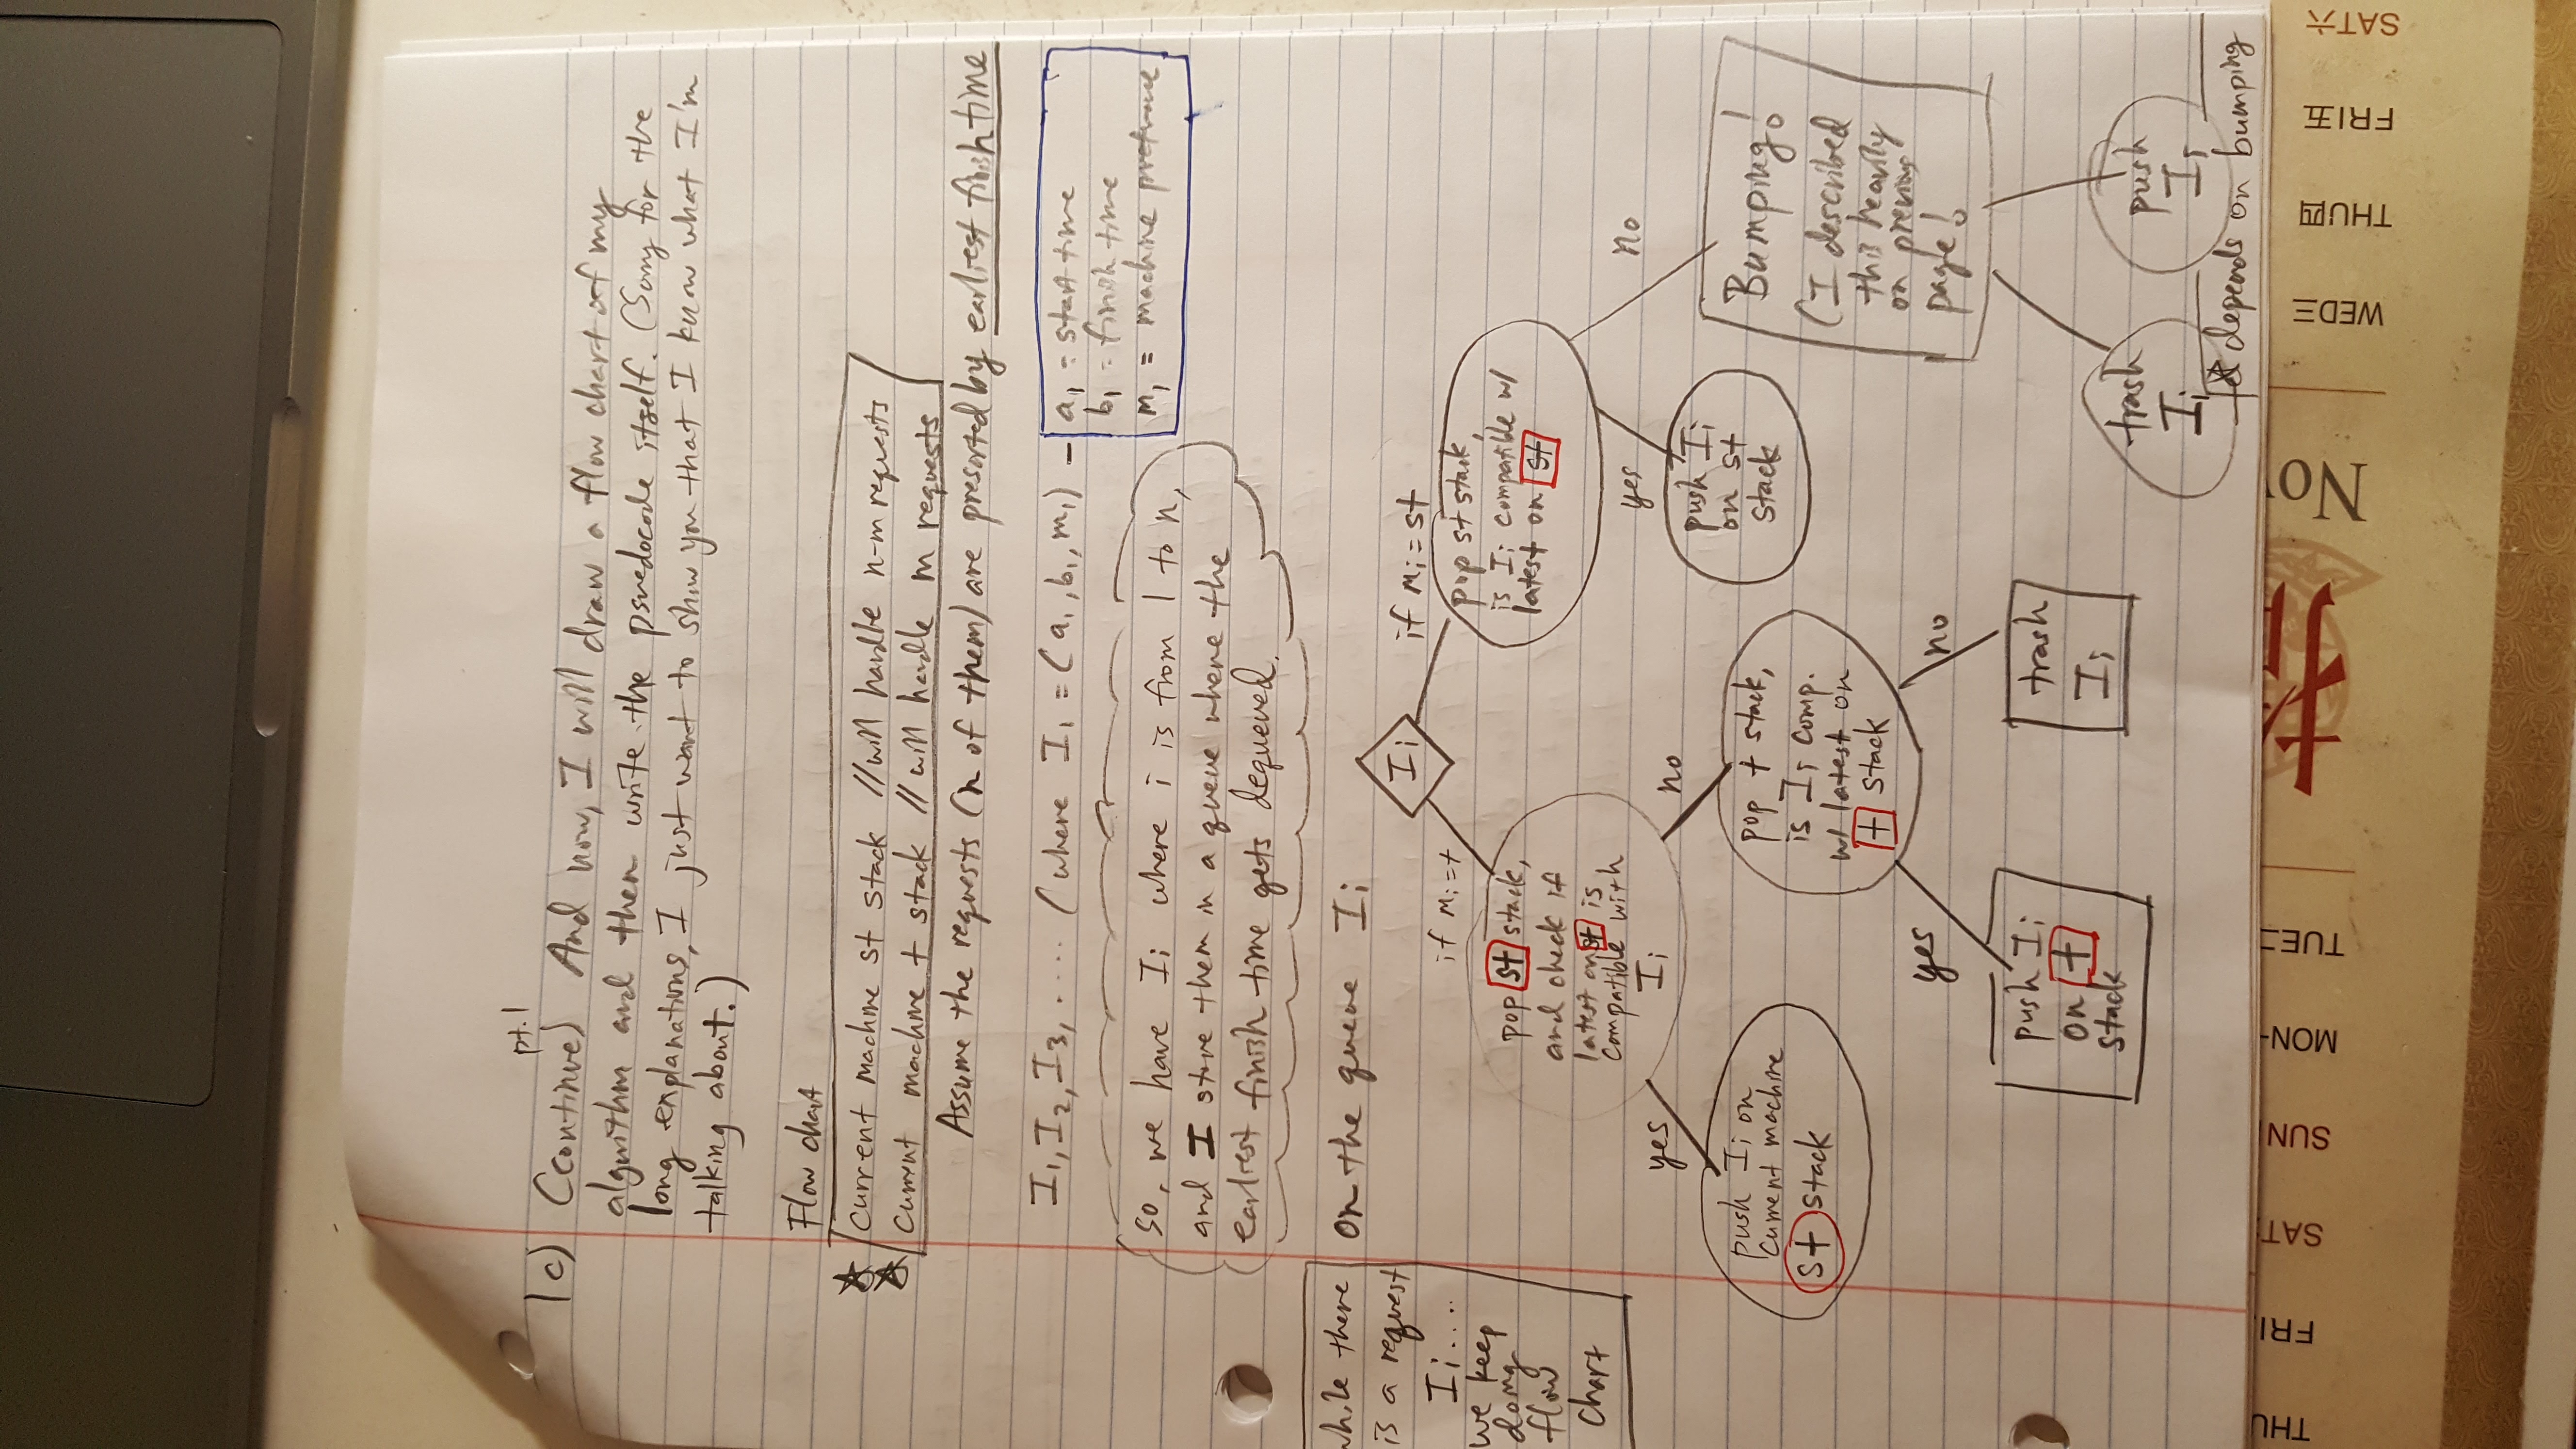 pt.1
1c) (continue) And now, I will draw a flow chart of my
algorithm and then write the psuedocode itself. (Sorry for the
long explanations, I just want to show you that I know what I'm
talking about.)
Flow chart
current machine st stack //will handle n-m requests
current machine t stack // will handle m requests
Assume the requests (n of them) are presorted by earliest finish time
I1, I2, I3, .... (where I1 = (a1, b1, m1) –
a1 = start time
b1 = finish time
m1 = machine
So, we have Ii where i is from 1 to n,
and I store them in a queue where the
earliest finish time gets dequeued.
while there
is a request
Ii....
we keep
doing
flow
chart
on the queue Ii
Ii
if mi=t
if mi=st
pop st stack,
and check if
latest on st is
compatible with
Ii
pop st stack,
is Ii compatible w/
latest on st
yes
no
yes
no
push Ii on
current machine
st stack
pop t stack,
is Ii comp.
w/ latest on
t stack
push Ii
on st
stack
Bumping!
(I described
this heavily
on previous
page!
yes
no
push Ii
on t
stack
trash
Ii
trash
Ii
push
Ii
depends on bumping
THU
FRI
SAT
SUN
MON-
TUE二
No
WED三
THU四
FRI五
SAT六